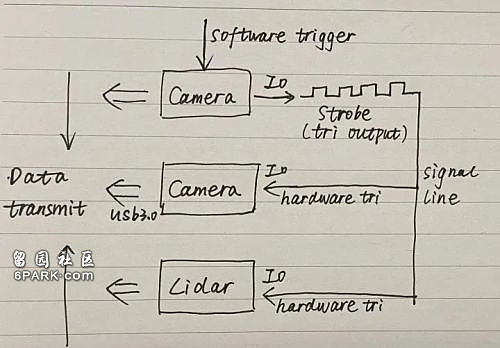 software trigger
Camera
IO
Strobe
(tri output)
Data
transmit
Camera
IO
hardware tri
signal
line
usb3.0
留园社区
6PARK.com
Lidar
IO
hardware tri